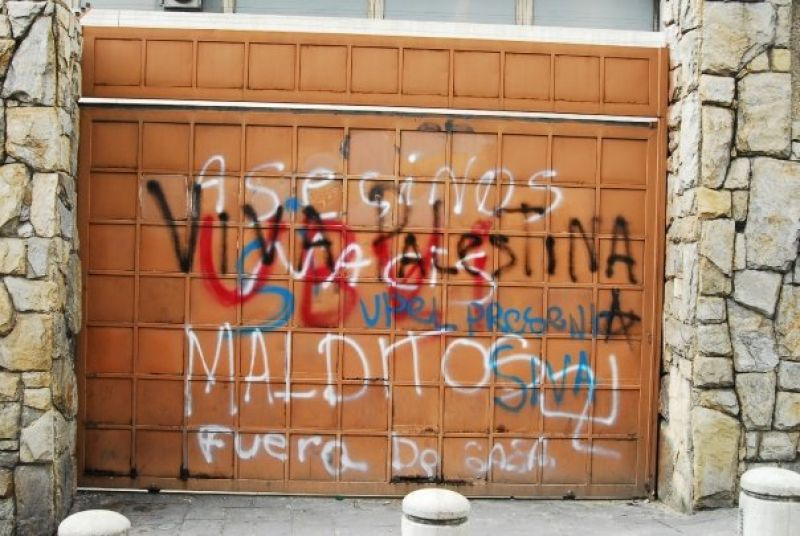 ASESINOS
VIVA PALESTINA
UPEL PRESENTE
MALDITOS
SIVA
Fuera De GASA